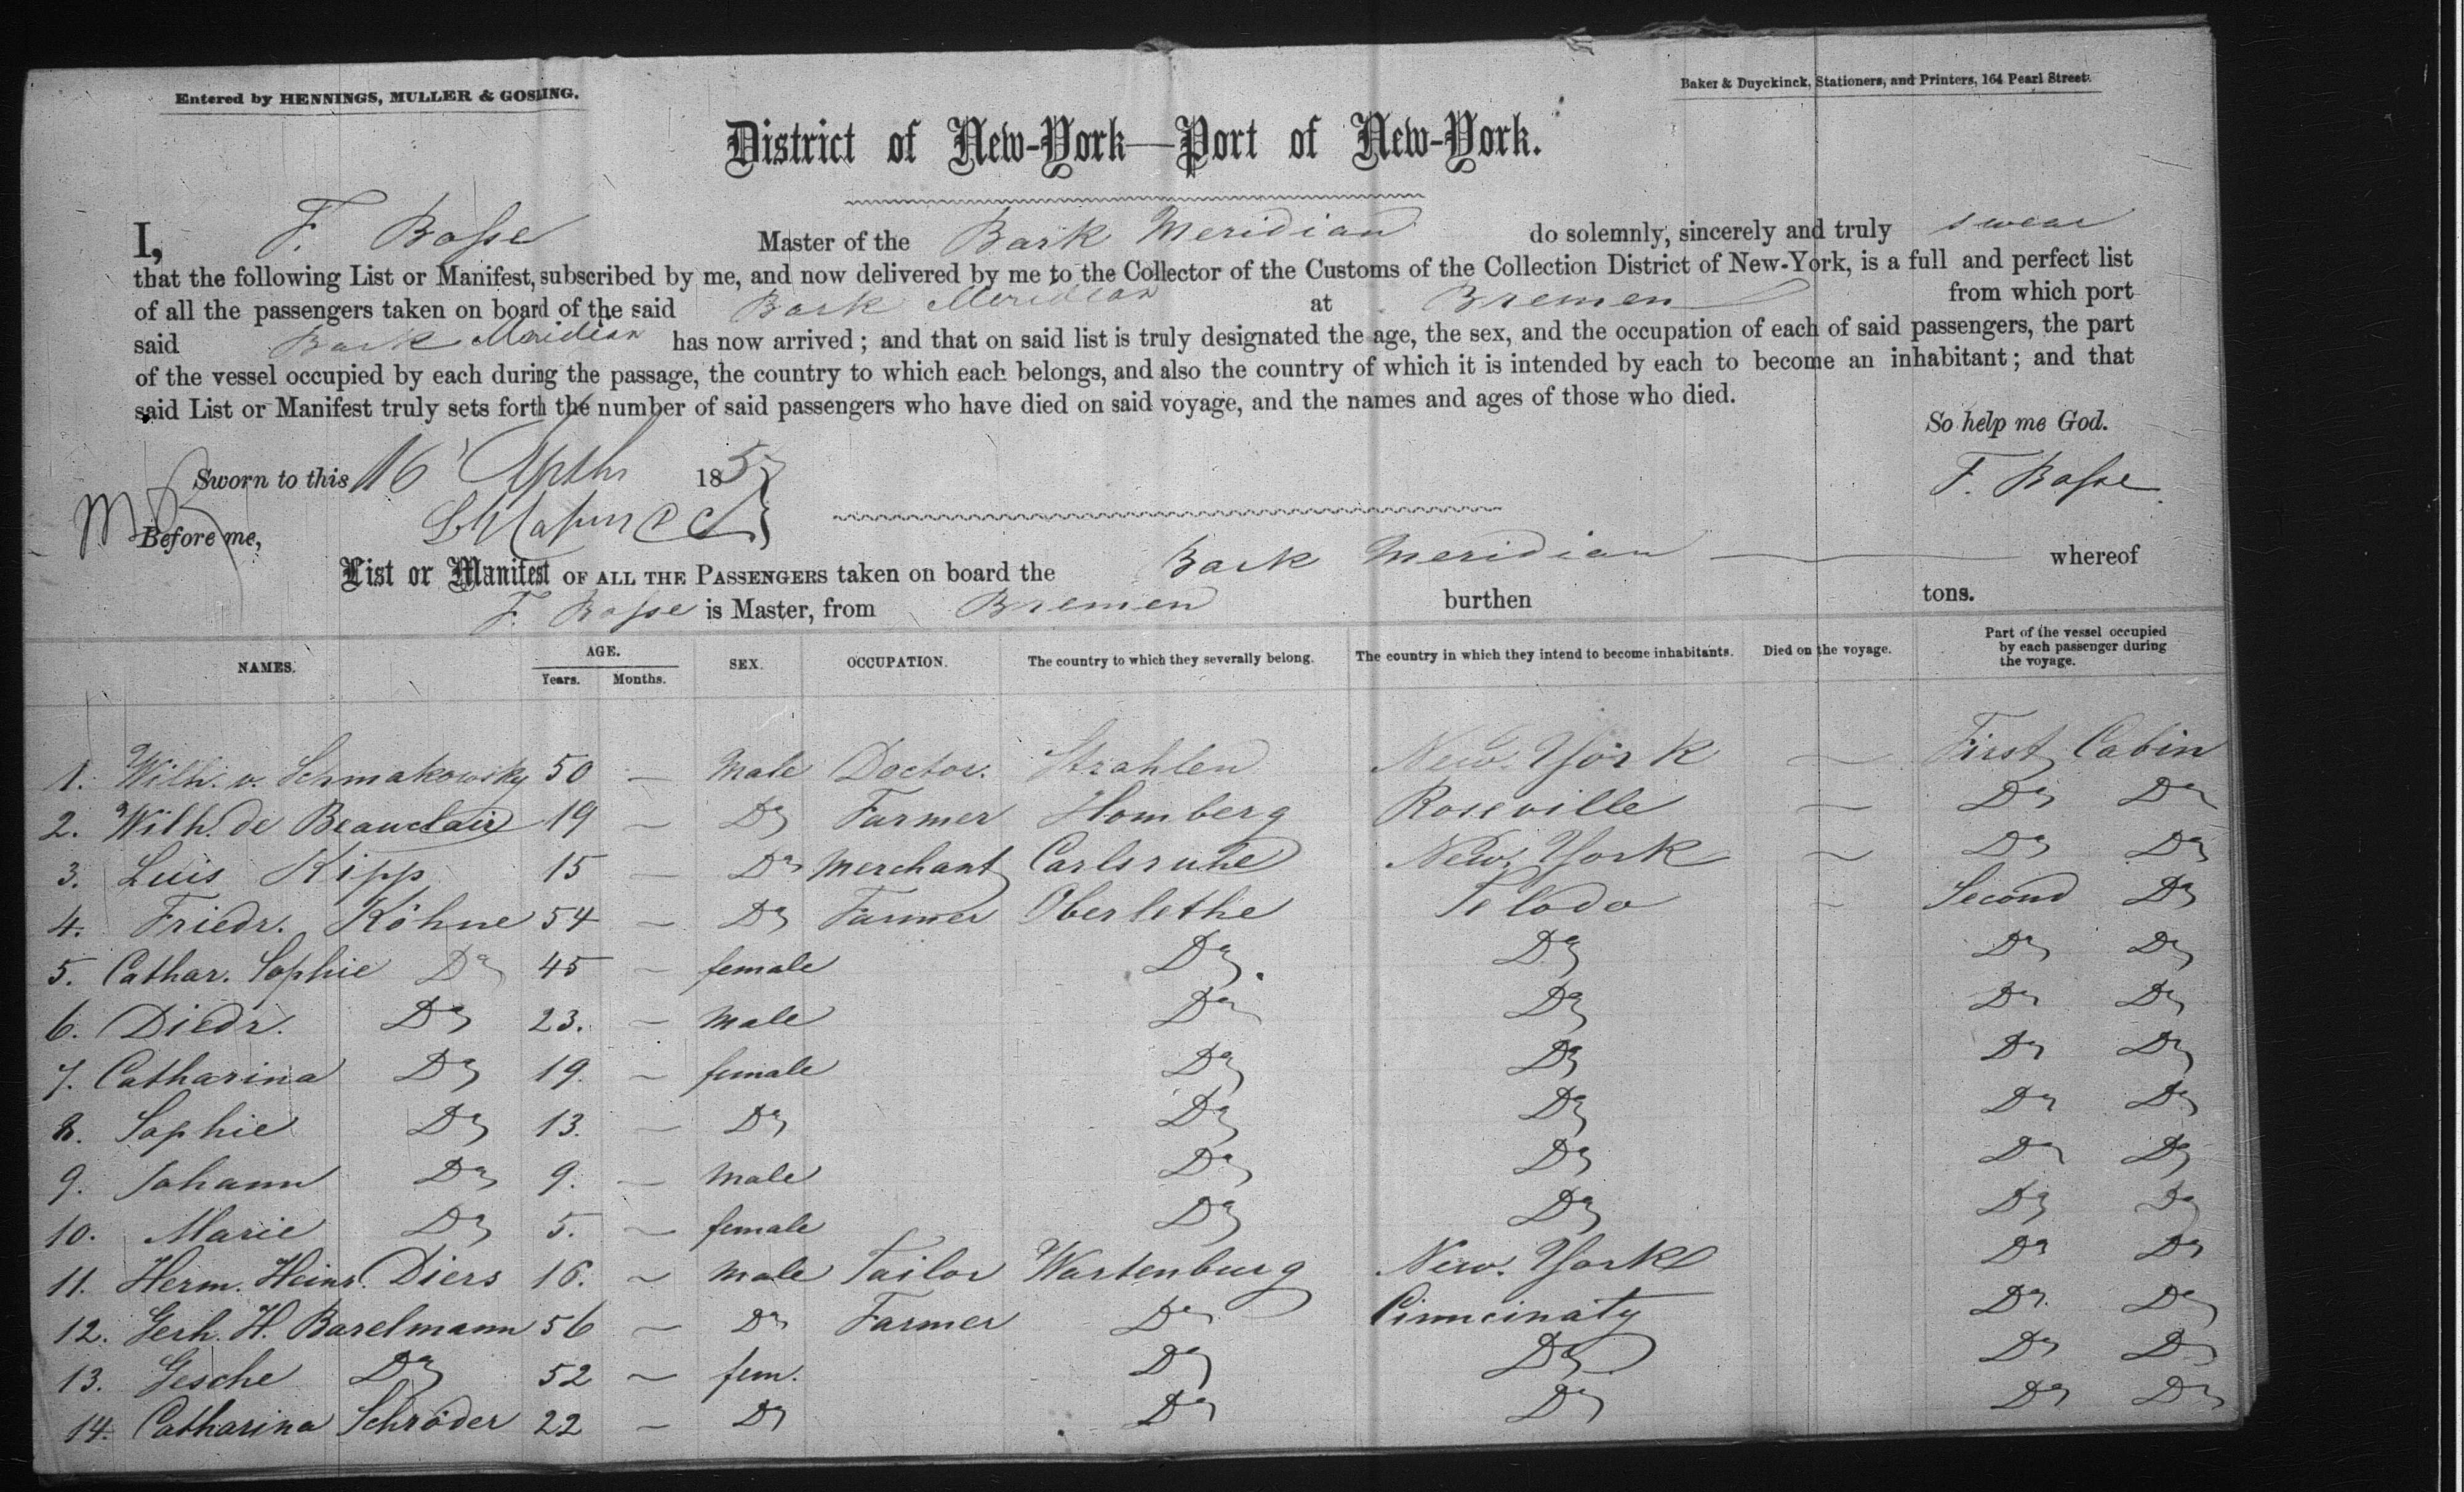 Entered by HENNINGS, MULLER & GOSLING.
Baker & Duyckinck, Stationers, and Printers, 164 Pearl Street.
District of New-York—Port of New-York.
I, F. Bosse Master of the Bark Meridian do solemnly, sincerely and truly swear
that the following List or Manifest, subscribed by me, and now delivered by me to the Collector of the Customs of the Collection District of New-York, is a full and perfect list
of all the passengers taken on board of the said Bark Meridian at Bremen from which port
said Bark Meridian has now arrived; and that on said list is truly designated the age, the sex, and the occupation of each of said passengers, the part
of the vessel occupied by each during the passage, the country to which each belongs, and also the country of which it is intended by each to become an inhabitant; and that
said List or Manifest truly sets forth the number of said passengers who have died on said voyage, and the names and ages of those who died.
So help me God.
Sworn to this 16 185
F. Bosse
Before me,
List or Manifest OF ALL THE PASSENGERS taken on board the Bark Meridian whereof
F. Bosse is Master, from Bremen burthen tons.
NAMES. AGE. Years. Months. SEX. OCCUPATION. The country to which they severally belong. The country in which they intend to become inhabitants. Died on the voyage. Part of the vessel occupied by each passenger during the voyage.
1. Wilh. v. Schmakowsky 50 — Male Doctor. Strahlen New. York — First Cabin
2. Wilh. de Beauclair 19 — Do Farmer Homberg Roseville — Do Do
3. Luis Kipp 15 — Do Merchant Carlsruhe New. York — Do Do
4. Friedr. Köhne 54 — Do Farmer Oberlethe Telodo — Second Do
5. Cathar. Sophie Do 45 — female Do Do Do Do
6. Diedr. Do 23. — Male Do Do Do Do
7. Catharina Do 19. — female Do Do Do Do
8. Sophie Do 13. — Do Do Do Do Do
9. Johann Do 9. — Male Do Do Do Do
10. Marie Do 5. — female Do Do Do Do
11. Herm. Heinr. Diers 16. — Male Tailor Wartenburg New. York Do Do
12. Gerh. H. Barelmann 56 — Do Farmer Do Cinncinaty Do Do
13. Gesche Do 52 — fem. Do Do Do Do
14. Catharina Schröder 22 — Do Do Do Do Do